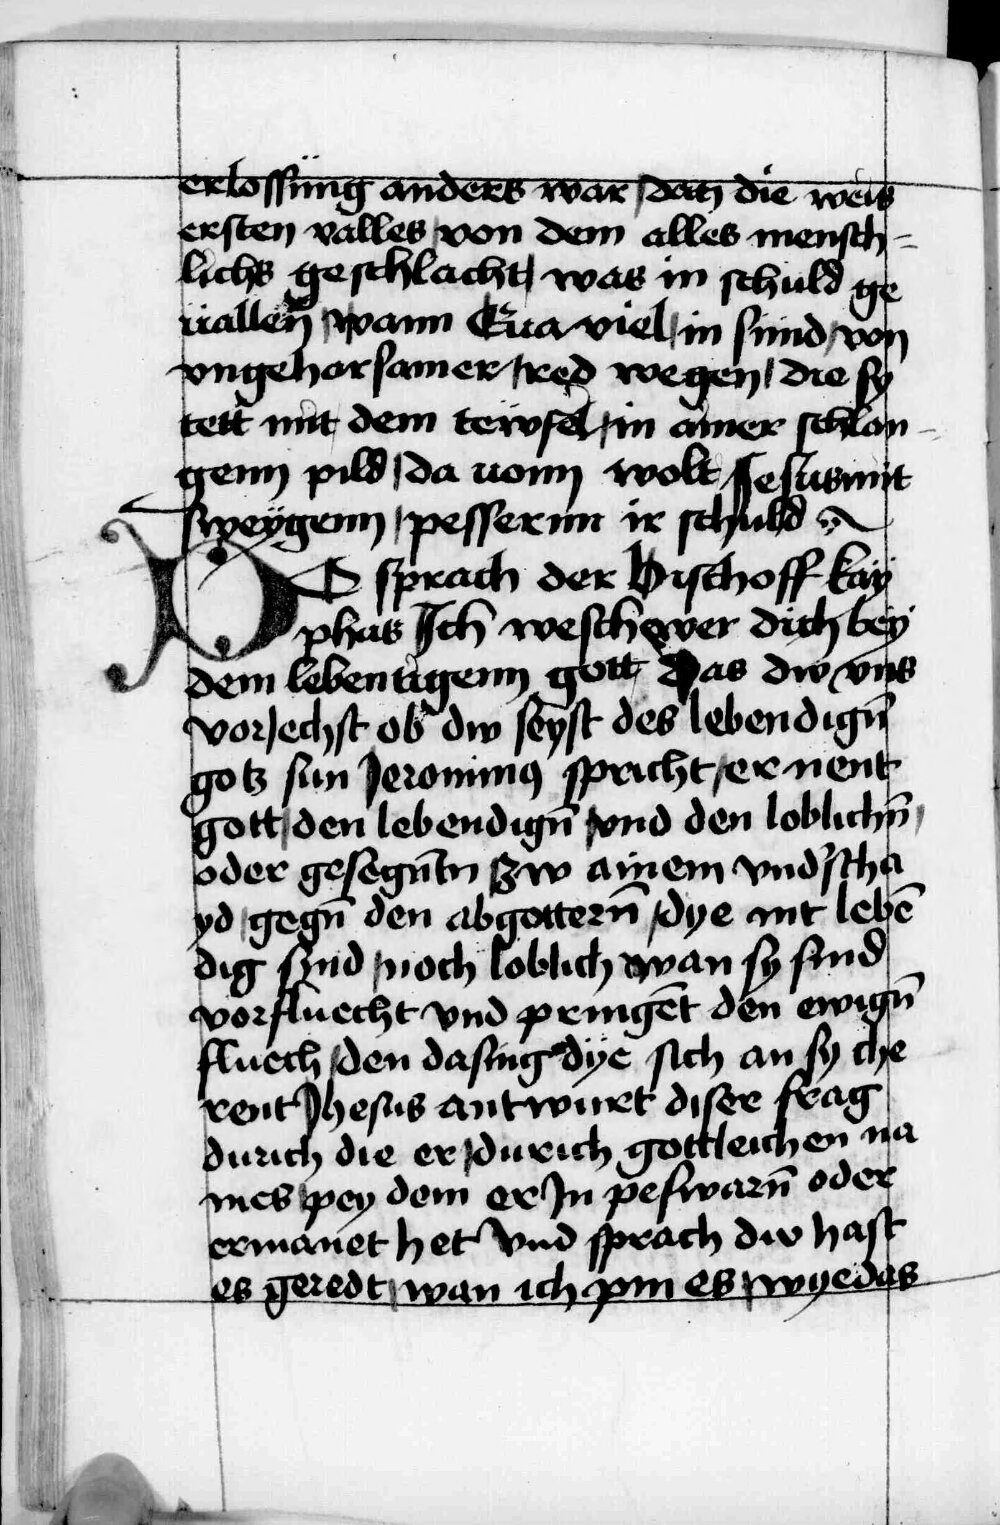 erlossüng anders war / dan die weis
ersten valles / von dem alles mensch-
lichs geschlacht / was in schuld ge
üallen̄ / wann Eua viel / in sünd / von
vngehorsamer / red wegen / die sy
tett mit dem tewfel / in ainer schlan-
genn pild / da uonn wolt Jesus mit
sweÿgenn / pessernn ir schuld
DO sprach der Bischoff kay
phas Ich weschower dich beÿ
dem lebentigenn gott Das dw vns
vorjechst ob dw seÿst des lebendign̄
gotz sun Jeronimus spricht / er nent
gott / den lebendign̄ / vnd den loblichn̄ /
oder gesegn̄tn zw ainem vnd'scha
yd / gegn̄ den abgottern̄ / dye nit lebē
dig synd / noch loblich wan sy sind
vorfluecht vnd pringēt den ewign̄
fluech / den dasing dÿe sich an sy che
rent Jhesus antwurt diser frag
durich die er / durich gottleichen na
mes / pey dem er In peswarn̄ oder
ermanet het Vnd sprach dw hast
es geredt / wan ich pin es / wye das